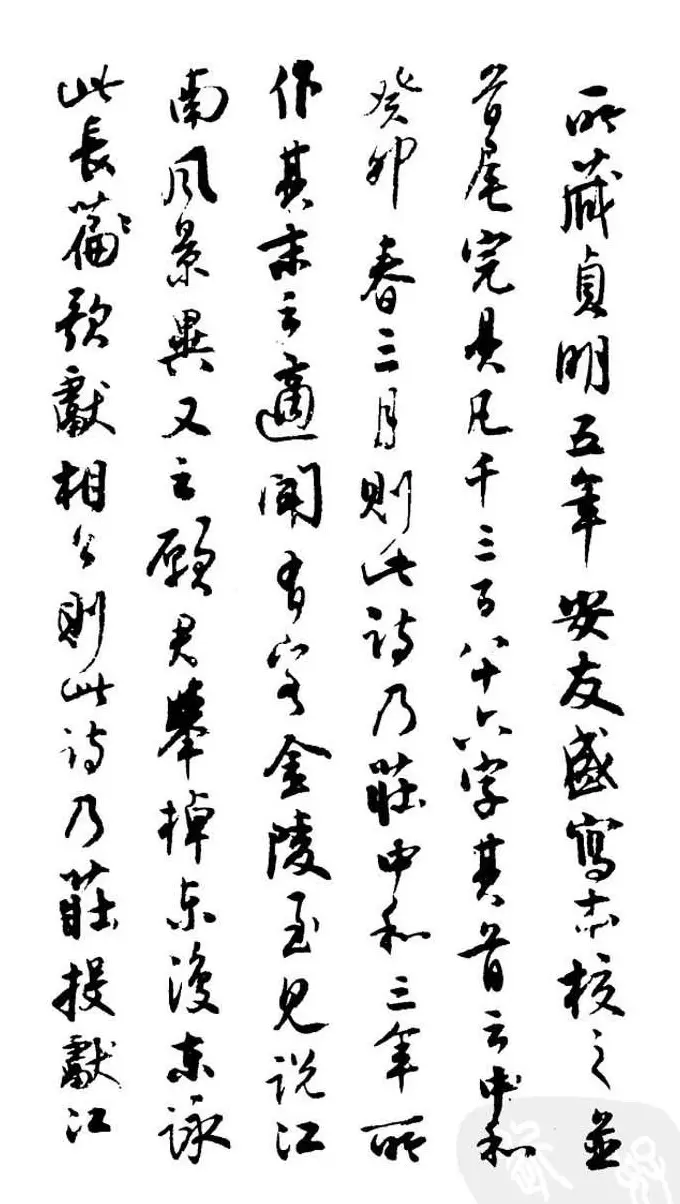 所藏貞明五年安友盛寫本校之並
首尾完具凡千三百八十六字其首云中和
癸卯春三月則此詩乃莊中和三年所
作其末云適聞有客金陵至見說江
南風景異又云願君舉棹東復東詠
此長篇歌獻相公則此詩乃莊投獻江